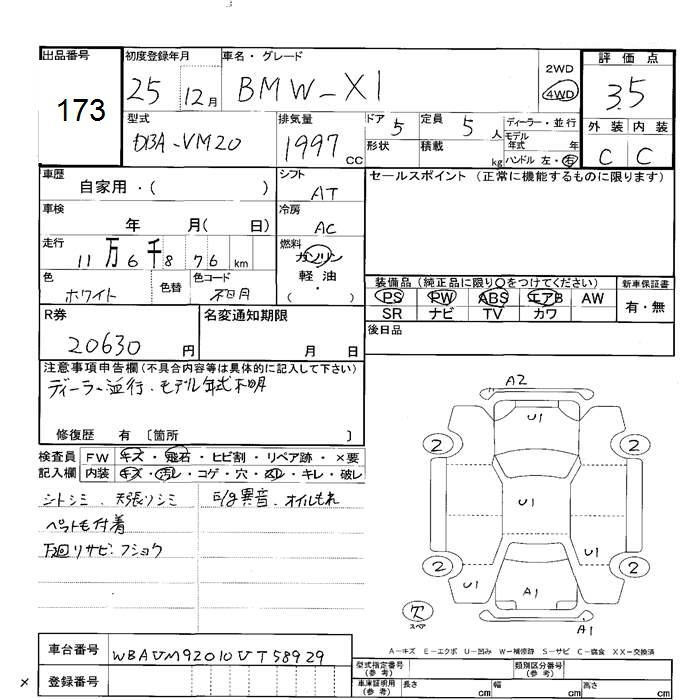 出品番号
173
初度登録年月
25 12月
車名・グレード
BMW-X1
2WD
4WD
評価点
3.5
外装 内装
C C
型式
DBA-VM20
排気量
1997 CC
ドア 5
形状
定員 5 人
積載 kg
ディーラー・並行
モデル年式 年
ハンドル 左・右
車歴
自家用・( )
シフト
AT
車検
年 月( 日)
冷房
AC
走行
11万6千876 km
燃料
ガソリン
軽油
( ・ )
色
ホワイト
色替
色コード
不明
セールスポイント (正常に機能するものに限ります)
装備品(純正品に限り○をつけてください)
PS PW ABS エアB AW
SR ナビ TV カワ
新車保証書
有・無
後日品
R券
20630 円
名変通知期限
月 日
注意事項申告欄(不具合内容等は具体的に記入して下さい)
ディーラー並行・モデル年式不明
修復歴 有 〔箇所 〕
検査員 FW キズ・飛石・ヒビ割・リペア跡・×要
記入欄 内装 キズ・汚レ・コゲ・穴・スレ・キレ・破レ
シトシミ 天張リシミ E/g異音、オイルもれ
ペット毛付着
下廻リサビ・フショク
A2
U1
2 2
U1
U1
2 2
U1
A1
A1
欠
スペア
A-キズ E-エクボ U-凹み W-補修跡 S-サビ C-腐食 XX-交換済
車台番号
WBAVM92010VT58929
登録番号
型式指定番号(参考)
類別区分番号(参考)
車庫証明用(参考)
長さ cm 幅 cm 高さ cm
×